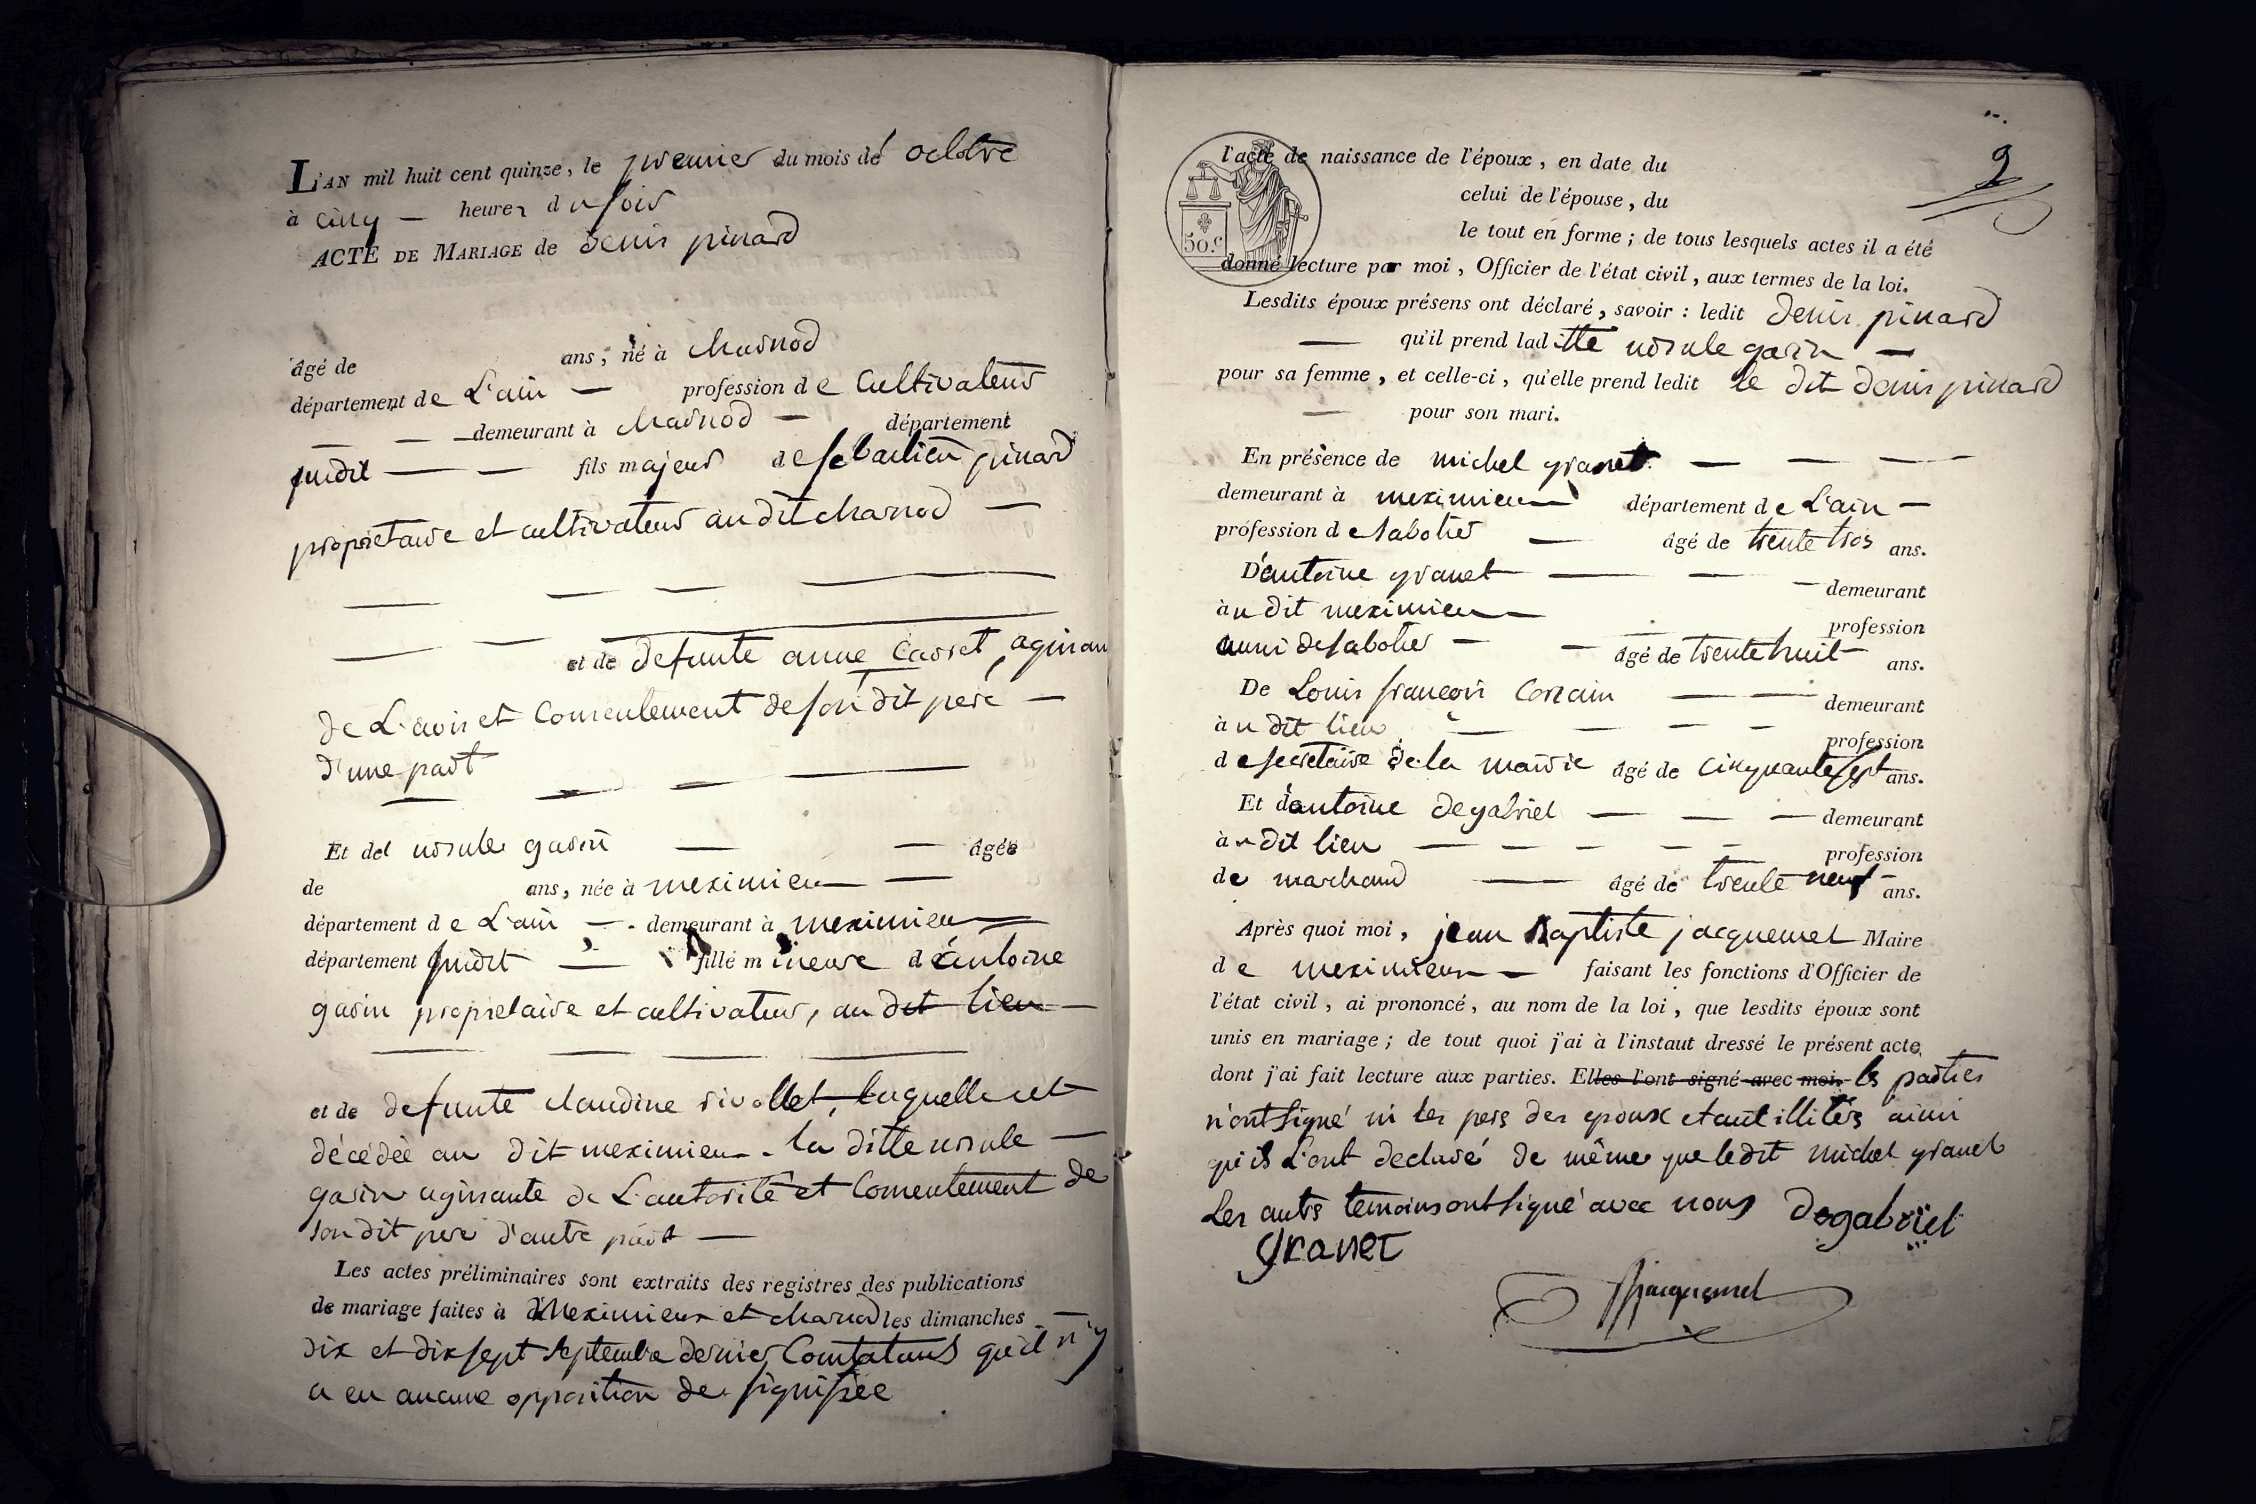 L'AN mil huit cent quinze, le premier du mois de octobre
à cinq — heures du soir
ACTE DE MARIAGE de denis pinard
âgé de ans, né à charnod
département de L'ain — profession de Cultivateur
— — — demeurant à charnod — département
susdit — — fils majeur de sebastien pinard
proprietaire et cultivateur au dit charnod —
et de defunte anne Carret, agissan
de L'avis et Consentement de son dit pere —
d'une part
Et del ursule garin — — âgée
de ans, née à meximieu —
département de L'ain — . demeurant à meximieu
département susdit — fille mineure d'antoine
garin proprietaire et cultivateur, au dit lieu —
et de defunte claudine rivollet, laquelle est
décédée au dit meximieu - la ditte ursule —
garin agissante de L'autorité et Consentement de
son dit pere d'autre part —
Les actes préliminaires sont extraits des registres des publications
de mariage faites à Meximieux et charnod les dimanches
dix et dix sept septembre dernier Constatans qu'il n'y
a eu aucune opposition de signifiée
2
l'acte de naissance de l'époux, en date du
celui de l'épouse, du
le tout en forme; de tous lesquels actes il a été
50 c.
donné lecture par moi, Officier de l'état civil, aux termes de la loi.
Lesdits époux présens ont déclaré, savoir : ledit denis pinard
— qu'il prend laditte ursule garin —
pour sa femme, et celle-ci, qu'elle prend ledit le dit denis pinard
— pour son mari.
En présence de michel granet — — —
demeurant à meximieu département de L'ain —
profession de sabotier — âgé de trente trois ans.
D'antoine granet — — — demeurant
àu dit meximieu — profession
aussi de sabotier — — âgé de trente huit ans.
De Louis françois — — demeurant
àu dit lieu — — — — profession
de secretaire de la mairie âgé de cinquante sept ans.
Et d'antoine degabriel — — — demeurant
àu dit lieu — — — — — profession
de marchand — âgé de trente neuf ans.
Après quoi moi, jean Baptiste jacquemet Maire
de meximieux — faisant les fonctions d'Officier de
l'état civil, ai prononcé, au nom de la loi, que lesdits époux sont
unis en mariage; de tout quoi j'ai à l'instaut dressé le présent acte,
dont j'ai fait lecture aux parties. Elles l'ont signé avec moi. les parties
n'ont signé ni les pers des epoux etant illitérés ainsi
qu'ils L'ont declaré de même que ledit michel granet
Les autrs temoins ont signé avec nous Degabriel
granet
Jacquemet